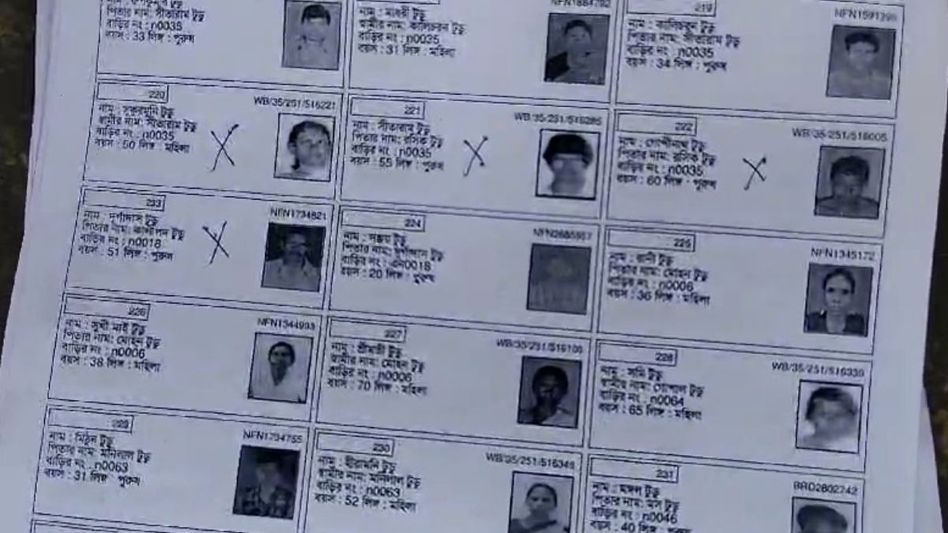 স্বামীর নাম: সীতারাম টুডু
বাড়ির নং : n0035
বয়স : 33 লিঙ্গ : পুরুষ
নাম : মাধবী টুডু
স্বামীর নাম: কালিচরন টুডু
বাড়ির নং : n0035
বয়স : 31 লিঙ্গ : মহিলা
219
NFN1591395
নাম : কালিচরন টুডু
পিতার নাম: সীতারাম টুডু
বাড়ির নং : n0035
বয়স : 34 লিঙ্গ : পুরুষ
220
WB/35/251/516221
স্বামীর নাম: সীতারাম টুডু
বাড়ির নং : n0035
বয়স : 50 লিঙ্গ : মহিলা
221
WB/35/251/516285
নাম : সীতারাম টুডু
পিতার নাম: রসিক টুডু
বাড়ির নং : n0035
বয়স : 55 লিঙ্গ : পুরুষ
222
WB/35/251/516005
নাম : গোপীনাথ টুডু
পিতার নাম: রসিক টুডু
বাড়ির নং : n0035
বয়স : 60 লিঙ্গ : পুরুষ
NFN1734821
নাম : দুর্গাদাস টুডু
পিতার নাম: কালীপদ টুডু
বাড়ির নং : n0018
বয়স : 51 লিঙ্গ : পুরুষ
224
নাম : সঞ্জয় টুডু
পিতার নাম: দুর্গাদাস টুডু
বাড়ির নং : এন0018
বয়স : 20 লিঙ্গ : পুরুষ
225
NFN1345172
নাম : রানী টুডু
পিতার নাম: মোহন টুডু
বাড়ির নং : n0006
বয়স : 36 লিঙ্গ : মহিলা
226
NFN1344993
নাম : সুখী মাই টুডু
পিতার নাম: মোহন টুডু
বাড়ির নং : n0006
বয়স : 38 লিঙ্গ : মহিলা
227
WB/35/251/516100
নাম : শ্রীমতী টুডু
স্বামীর নাম: মোহন টুডু
বাড়ির নং : n0006
বয়স : 70 লিঙ্গ : মহিলা
228
WB/35/251/516339
নাম : সমি টুডু
স্বামীর নাম: গোপাল টুডু
বাড়ির নং : n0064
বয়স : 65 লিঙ্গ : মহিলা
229
NFN1734755
নাম : মিঠুন টুডু
পিতার নাম: মনিলাল টুডু
বাড়ির নং : n0063
বয়স : 31 লিঙ্গ : পুরুষ
230
WB/35/251/516348
নাম : হীরামনি টুডু
স্বামীর নাম: মনিলাল টুডু
বাড়ির নং : n0063
বয়স : 52 লিঙ্গ : মহিলা
231
BRD2802742
নাম : মঙ্গল টুডু
পিতার নাম: টুডু
বাড়ির নং : n0046
বয়স : 40 লিঙ্গ : পুরুষ